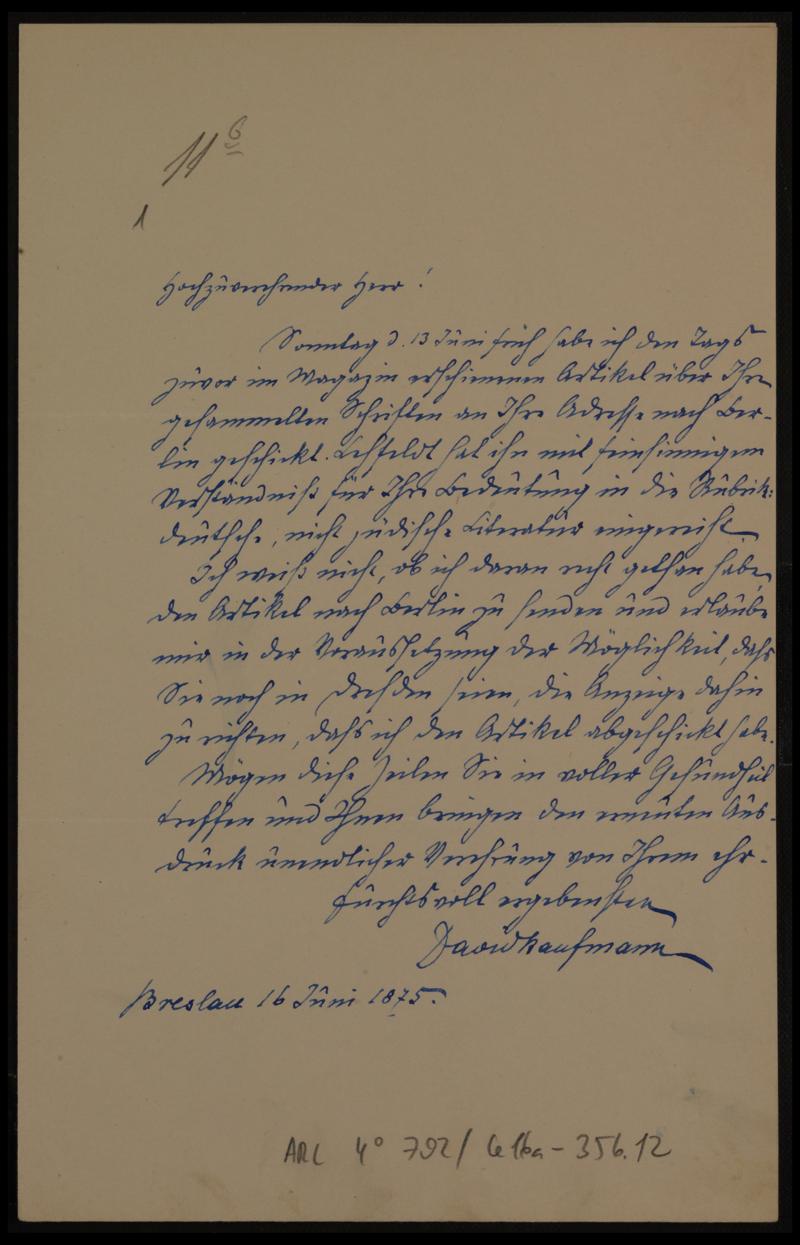 11 6
1
Hochzuverehrender Herr!
Sonntag d. 13 Juni früh habe ich den Tags
zuvor im Magazin erschienenen Artikel über Ihre
gesammelten Schriften an Ihre Adresse nach Ber-
lin geschickt. Lehfeldt hat ihn mit feinsinnigem
Verständniß für Ihre Bedeutung in die Rubrik:
deutsche, nicht jüdische Literatur eingereiht
Ich weiß nicht, ob ich daran recht gethan habe,
den Artikel nach Berlin zu senden und erlaube
mir in der Voraussetzung der Möglichkeit, dass
Sie noch in Dresden seien, die Anzeige dahin
zu richten, dass ich den Artikel abgeschickt habe.
Mögen diese Zeilen Sie in voller Gesundheit
treffen und Ihnen bringen den erneuten Aus-
druck unendlicher Verehrung von Ihrem ehr-
furchtsvoll ergebensten
David Kaufmann
Breslau 16 Juni 1875.
ARC 4° 792/ 356.12